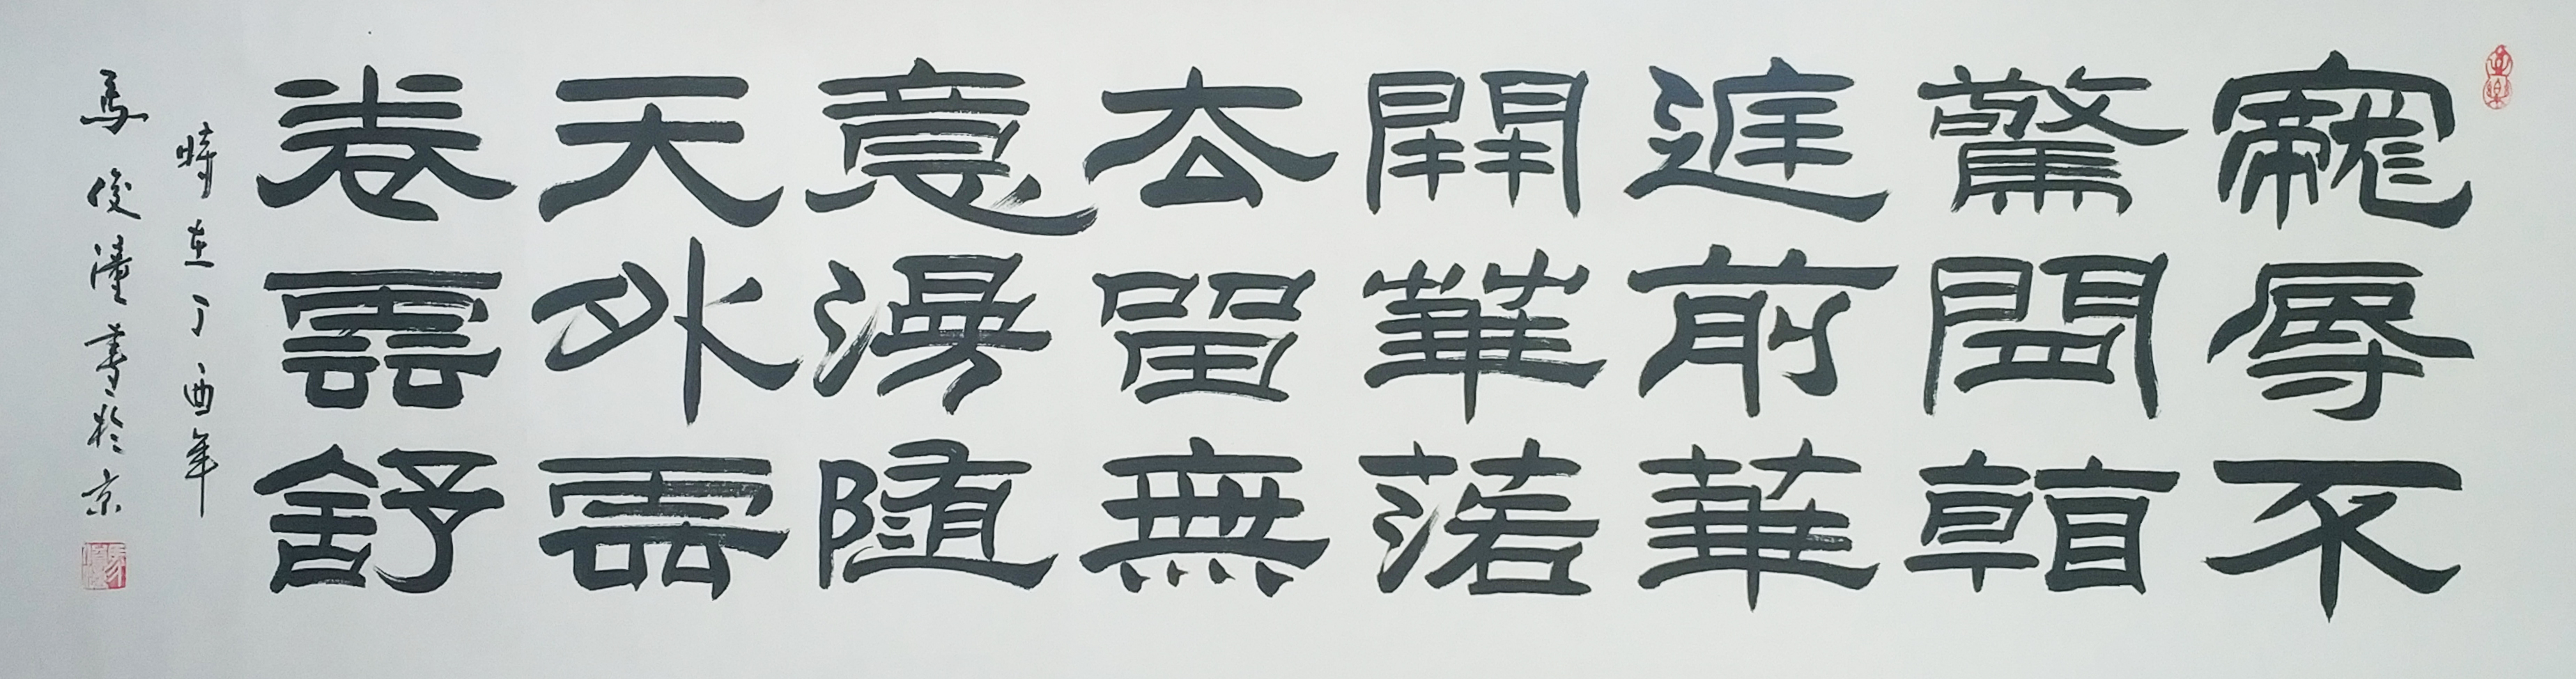 寵辱不
驚閒看
庭前華
開華落
去留無
意漫隨
天外雲
卷雲舒
時在丁酉年
馬俊潼書於京